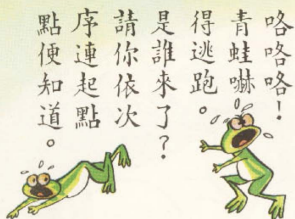 咯咯咯！
青蛙嚇
得逃跑。
是誰來了？
請你依次
序連起點
點便知道。